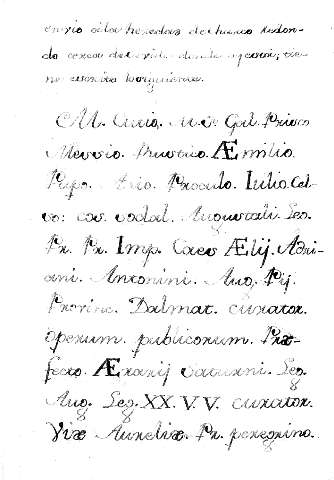 en rio otha heredas de hueco redon-
do cerca del rida donde agora, tie-
ne escrito lo siguiente.
M. Curio. M. F. Gal. Prisco
Messio. Rustico. Æmilio
Papo. Arrio. Proculo. Iulio. Cel-
so: cos. sodal. Augustali. Leg.
Pr. Pr. Imp. Caes Ælij. Adri-
ani. Antonini. Aug. Pij.
Provinc. Dalmat. curator.
operum. publicorum. Præ-
fecto. Ærarij Saturni. Leg.
Aug. Leg. XX. V. V. curator.
Viæ Aureliæ. Pr. peregrino.